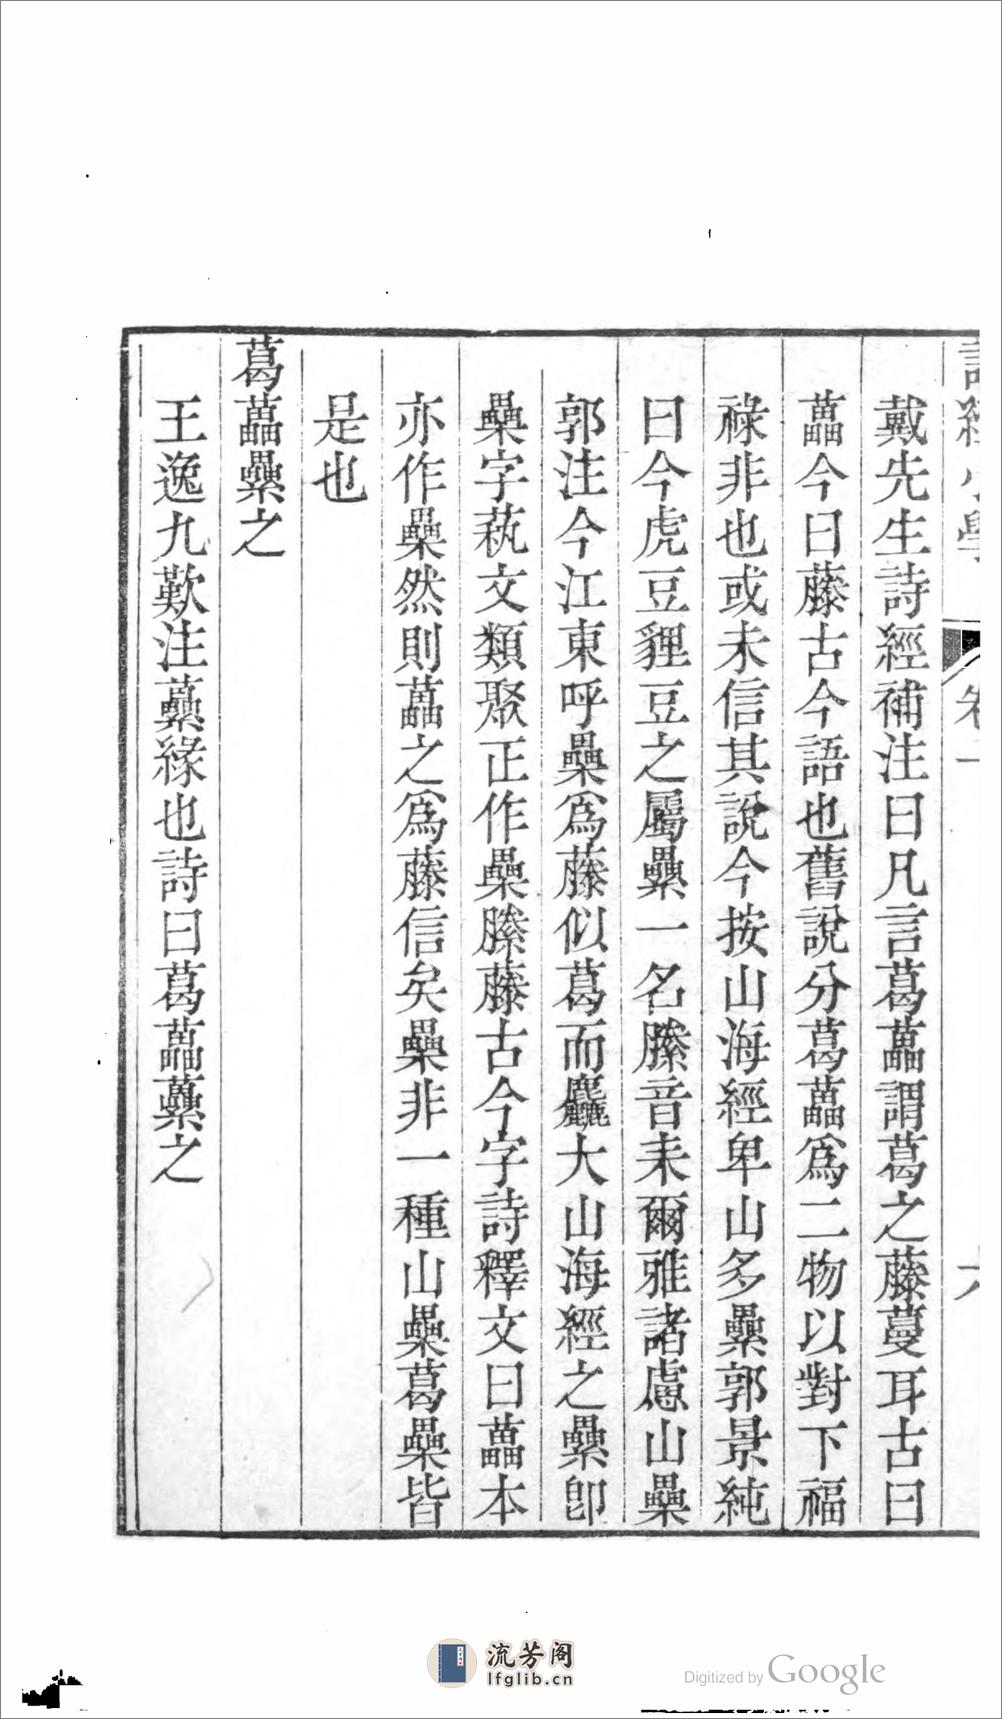 詩經小學 卷一 六
戴先生詩經補注曰凡言葛藟謂葛之藤蔓耳古曰
藟今曰藤古今語也舊說分葛藟爲二物以對下福
祿非也或未信其說今按山海經卑山多纍郭景純
曰今虎豆貍豆之屬纍一名縢音耒爾雅諸慮山櫐
郭注今江東呼櫐爲藤似葛而麤大山海經之纍卽
櫐字蓺文類聚正作櫐縢藤古今字詩釋文曰藟本
亦作櫐然則藟之爲藤信矣櫐非一種山櫐葛櫐皆
是也
葛藟纍之
王逸九歎注虆緣也詩曰葛藟虆之
流芳阁
lfglib.cn
Digitized by Google